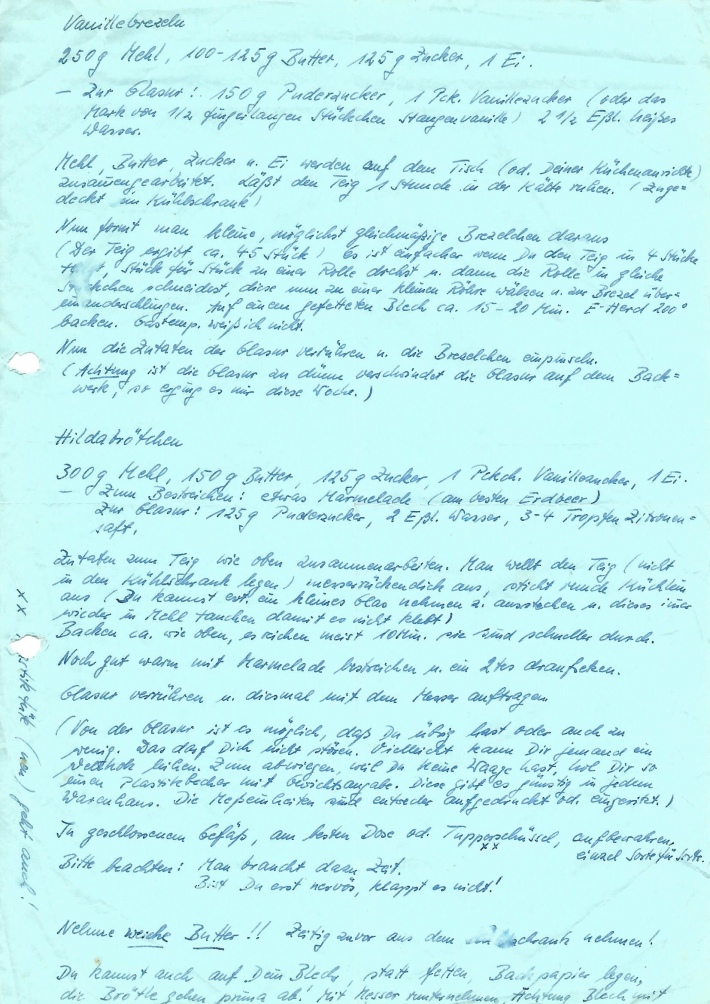 Vanillebrezeln
250g Mehl, 100-125g Butter, 125g Zucker, 1 Ei.
- Zur Glasur: 150g Puderzucker, 1 Pck. Vanillezucker (oder das
Mark von 1/2 fingerlangen Stückchen Stangenvanille) 2 1/2 Eßl. heißes
Wasser.
Mehl, Butter, Zucker u. Ei werden auf dem Tisch (od. Deiner Küchenanrichte)
zusammengearbeitet. Läßt den Teig 1 Stunde in der Kälte ruhen. (Zuge=
deckt im Kühlschrank)
Nun formt man kleine, möglichst gleichmäßige Brezelchen daraus
(Der Teig ergibt ca. 45 Stück) Es ist einfacher wenn Du den Teig in 4 Stücke
Stück für Stück zu einer Rolle drehst u. dann die Rolle in gleiche
Stückchen schneidest, diese nun zu einer kleinen Röhre wälzen u. zur Brezel über=
einanderschlingen. Auf einem gefetteten Blech ca. 15-20 Min. E-Herd 200°
backen. Gastemp. weiß ich nicht.
Nun die Zutaten der Glasur verrühren u. die Brezelchen einpinseln.
(Achtung ist die Glasur zu dünn verschwindet die Glasur auf dem Back=
werk, so erging es mir diese Woche.)
Hildabrötchen
300g Mehl, 150g Butter, 125g Zucker, 1 Pckch. Vanillezucker, 1 Ei.
- Zum Bestreichen: etwas Marmelade (am besten Erdbeer)
Zur Glasur: 125g Puderzucker, 2 Eßl. Wasser, 3-4 Tropfen Zitronen-
saft.
Zutaten zum Teig wie oben zusammenarbeiten. Man wellt den Teig (nicht
in den Kühlschrank legen) messerrückendick aus, sticht runde Küchlein
aus (Du kannst evt. ein kleines Glas nehmen z. ausstechen u. dieses immer
wieder in Mehl tauchen damit es nicht klebt)
Backen ca. wie oben, es reichen meist 10 Min. sie sind schneller durch.
Noch gut warm mit Marmelade bestreichen u. ein 2tes draufsetzen.
Glasur verrühren u. diesmal mit dem Messer auftragen
(Von der Glasur ist es möglich, daß Du übrig hast oder auch zu
wenig. Das darf Dich nicht stören. Vielleicht kann Dir jemand ein
Wellholz leihen. Zum abwiegen, weil Du keine Waage hast, hol Dir so
einen Plastikbecher mit Gewichtsangabe. Diese gibt es günstig in jedem
Warenhaus. Die Meßeinheiten sind entweder aufgedruckt od. eingeritzt.)
In geschlossenem Gefäß, am besten Dose od. Tupperschüssel, aufbewahren,
xx einzel Sorte für Sorte.
Bitte beachten: Man braucht dazu Zeit.
Bist Du erst nervös, klappt es nicht!
Nehme weiche Butter!! Zeitig zuvor aus dem nehmen!
Du kannst auch auf Dein Blech, statt fetten, Backpapier legen,
die Brötle gehen prima ab! Mit Messer runternehmen, Achtung Blech mit
xx geht auch!